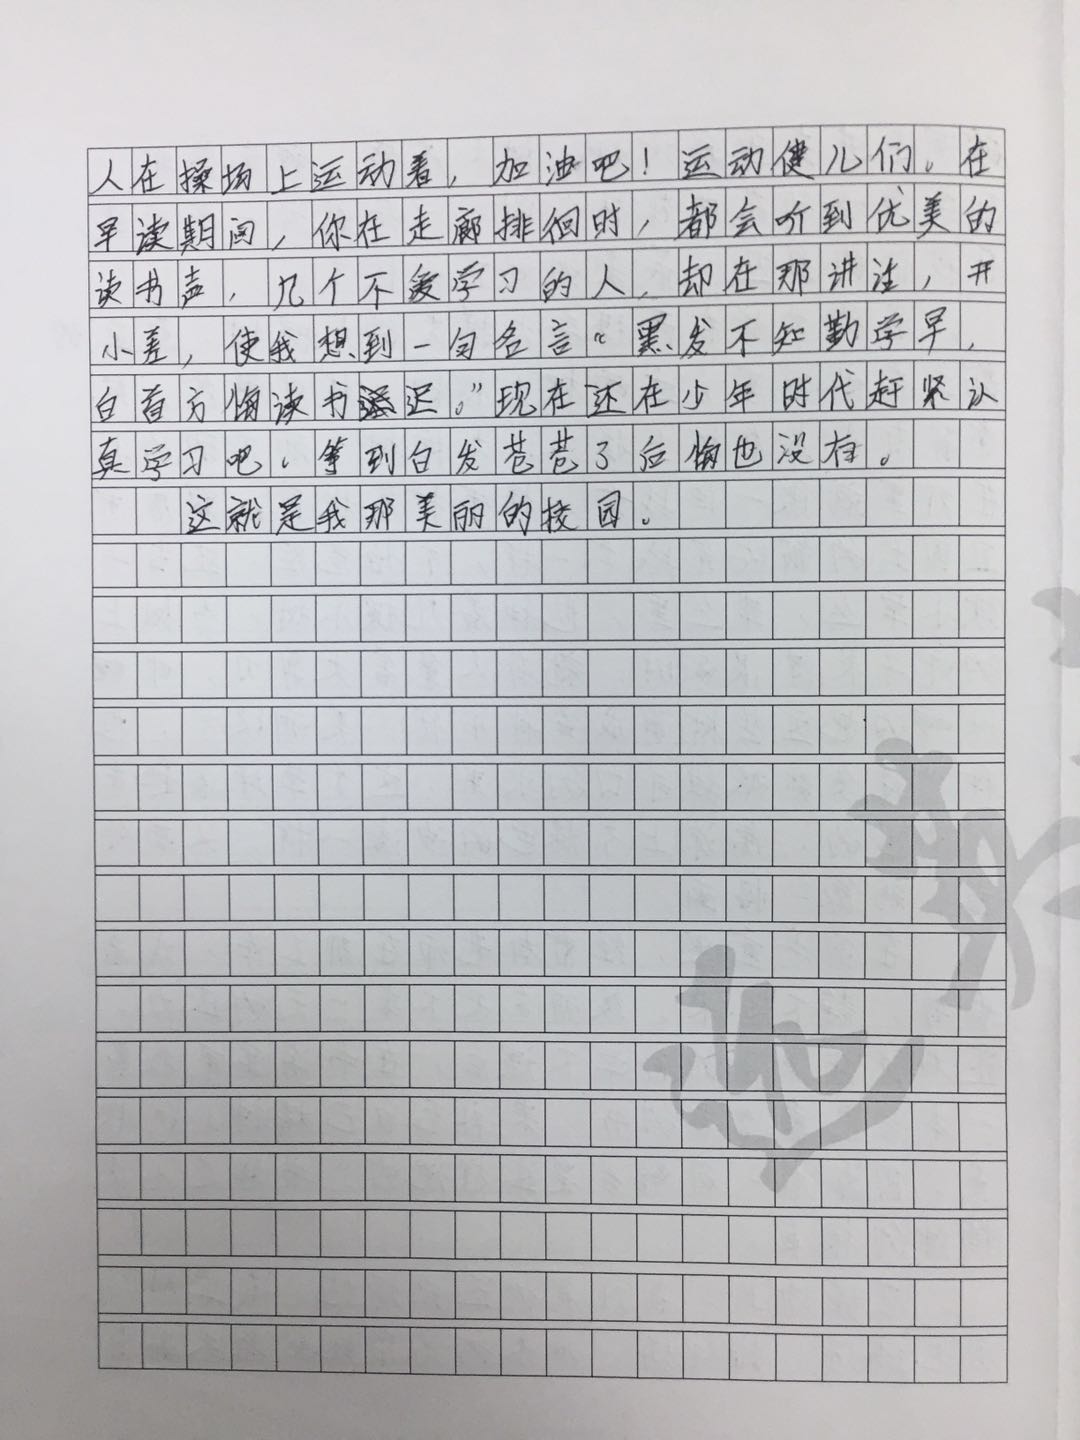 人在操场上运动着，加油吧！运动健儿们。在
早读期间，你在走廊排徊时，都会听到优美的
读书声，几个不爱学习的人，却在那讲注，开
小差，使我想到一句名言“黑发不知勤学早，
白首方悔读书迟。”现在还在少年时代赶紧认
真学习吧，等到白发苍苍了后悔也没有。
这就是我那美丽的校园。